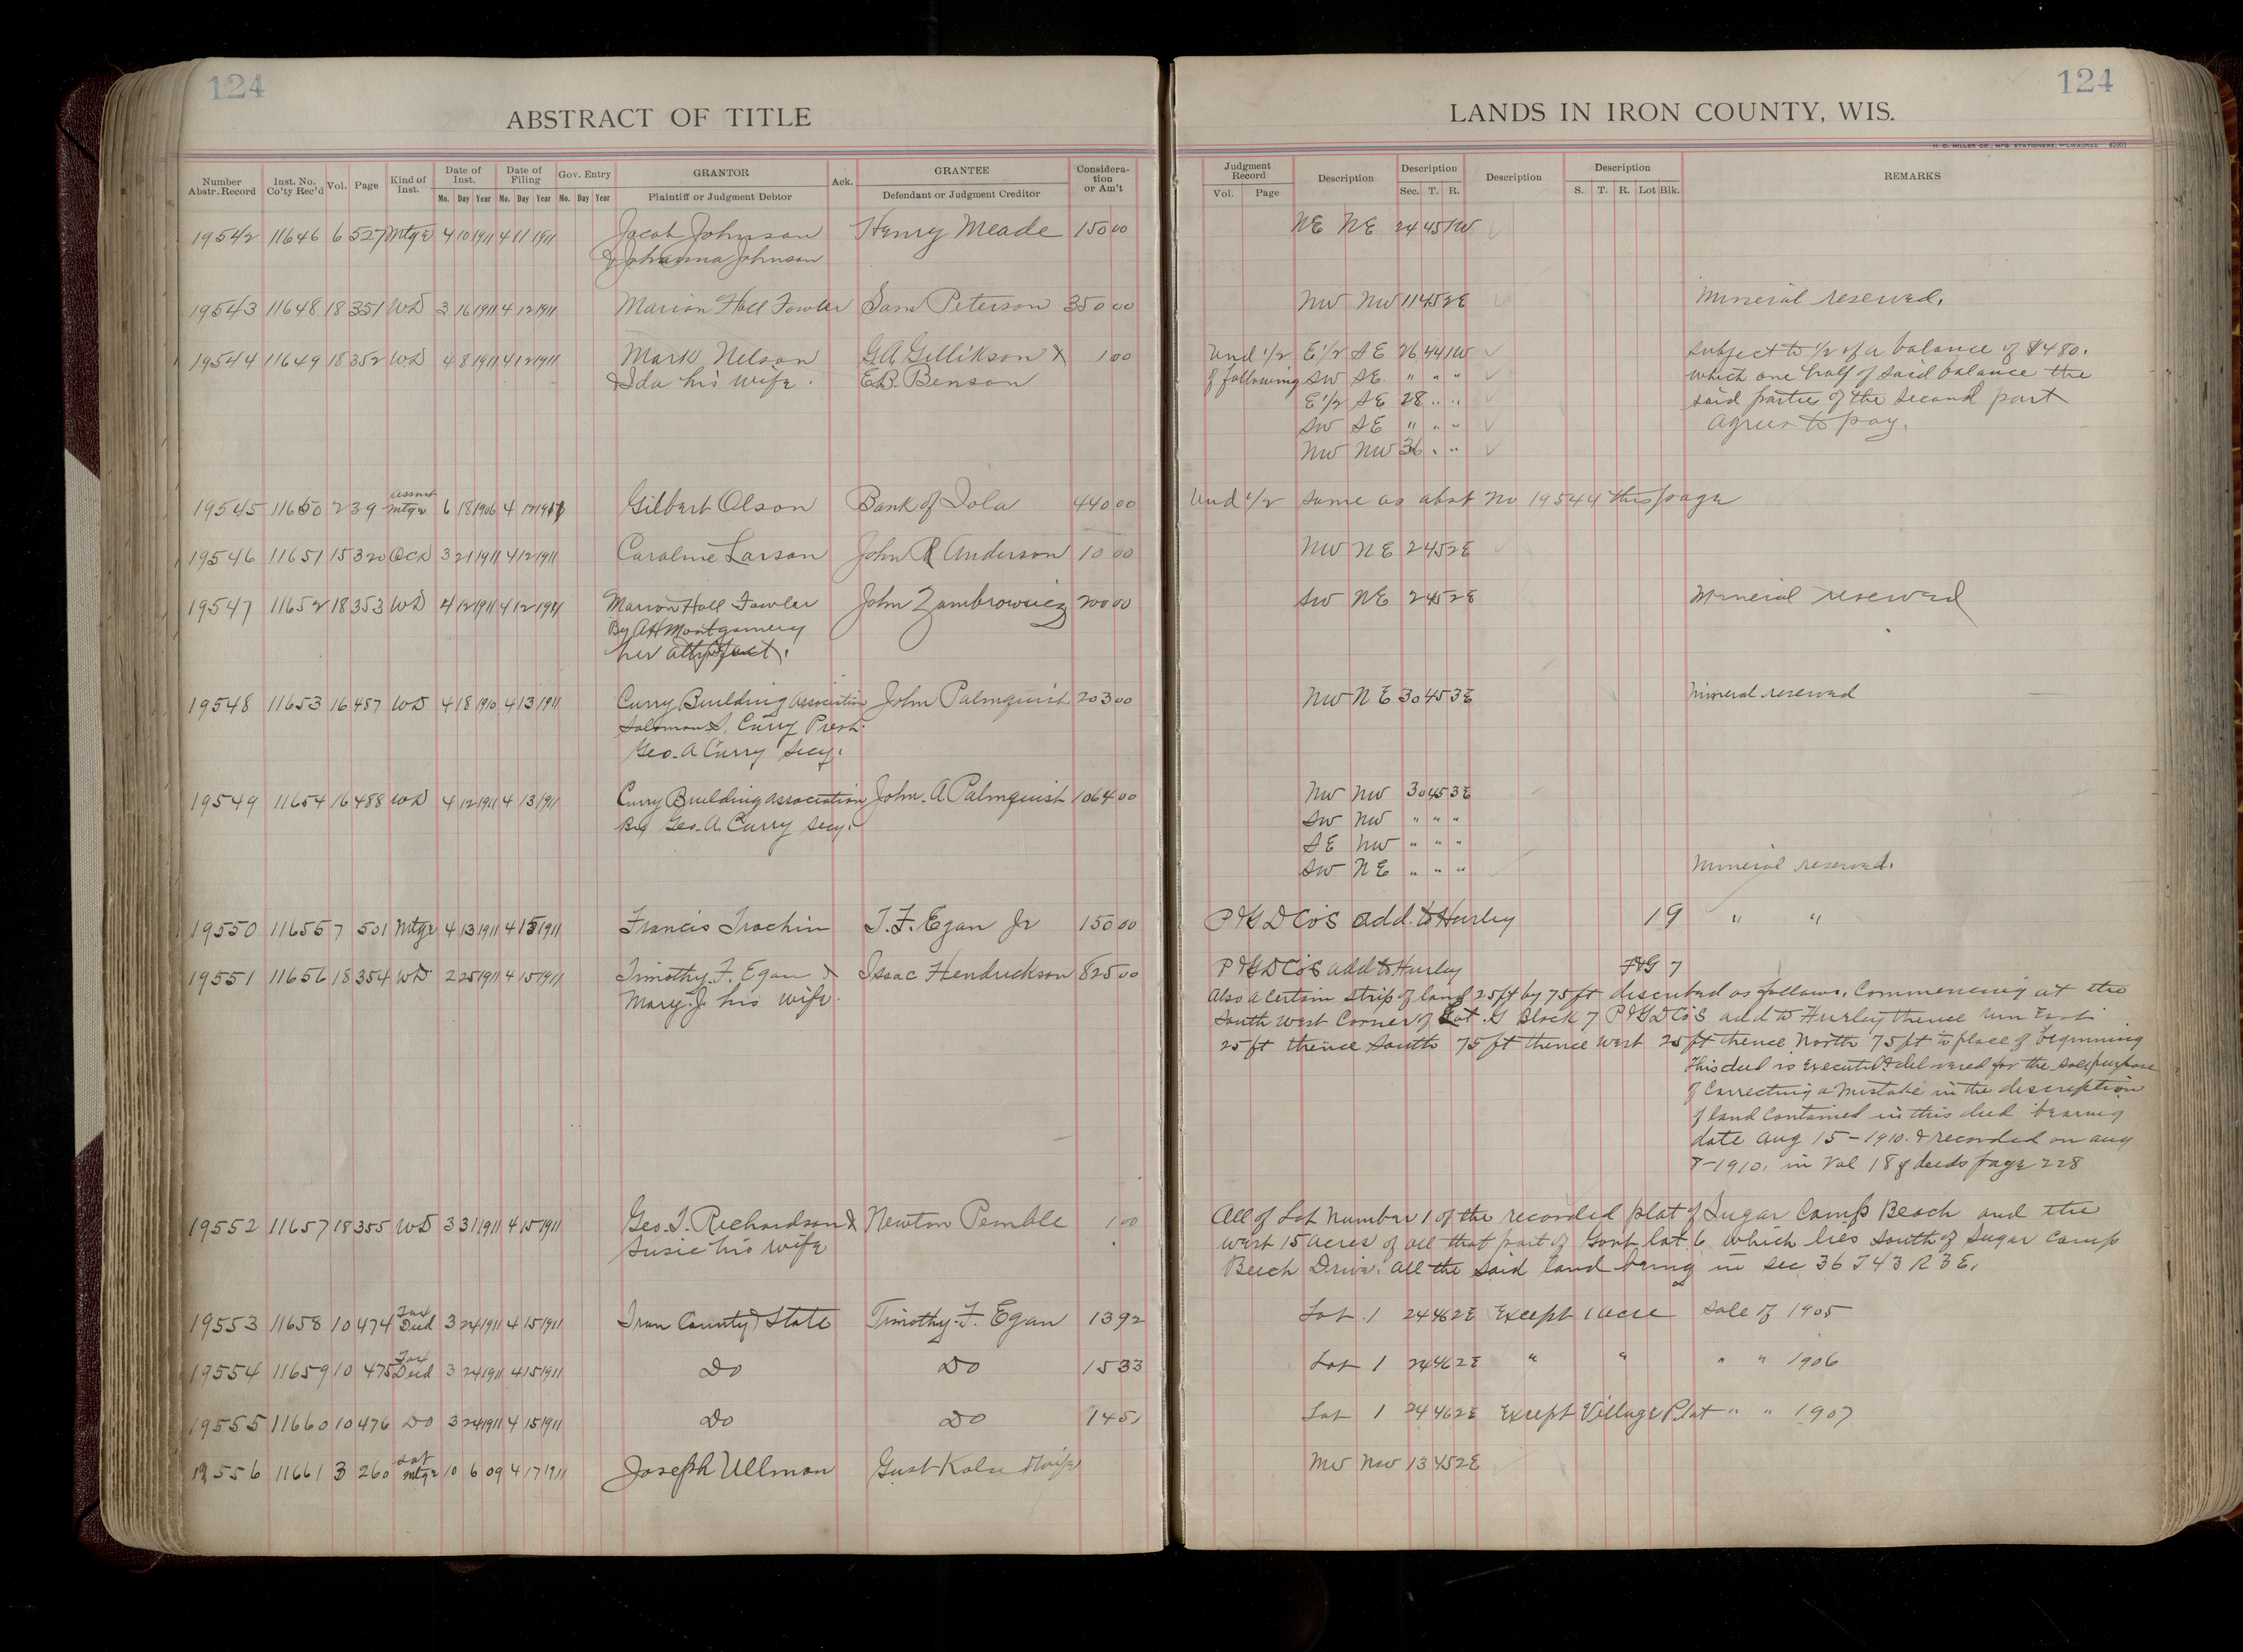 124
ABSTRACT OF TITLE
Number Abstr. Record Inst. No. Co'ty Rec'd Vol. Page Kind of Inst. Date of Inst. Date of Filing Gov. Entry GRANTOR Ack. GRANTEE Consideration or Am't
Mo. Day Year Mo. Day Year Mo. Day Year Plaintiff or Judgment Debtor Defendant or Judgment Creditor
19542 11646 6 527 Mtge 4 10 1911 4 11 1911 Jacob Johnson Henry Meade 150 00
& Johanna Johnson
19543 11648 18 351 WD 3 16 1911 4 12 1911 Marion Hall Fowler Sam Peterson 350 00
19544 11649 18 352 WD 4 8 1911 4 12 1911 Mark Nelson G.A. Gillikson & 1 00
& Ida his wife. E.B. Benson
19545 11650 2 39 Assmt Mtge 6 18 1906 4 12 1911 Gilbert Olson Bank of Iola 440 00
19546 11651 15 320 QCD 3 21 1911 4 12 1911 Caroline Larson John R Anderson 10 00
19547 11652 18 353 WD 4 12 1911 4 12 1911 Marion Hall Fowler John Zambrowicz 200 00
By AH Montgomery
her atty of fact.
19548 11653 16 487 WD 4 18 1910 4 13 1911 Curry Building Association John Palmquist 203 00
Solomon S. Curry Prest.
Geo. A Curry Secy.
19549 11654 16 488 WD 4 12 1911 4 13 1911 Curry Building Association John A Palmquist 1064 00
By Geo. A. Curry Secy.
19550 11655 7 501 Mtge 4 13 1911 4 15 1911 Francis Trochin T.F. Egan Jr 150 00
19551 11656 18 354 WD 2 25 1911 4 15 1911 Timothy F. Egan & Issac Hendrickson 825 00
Mary J. his wife.
19552 11657 18 355 WD 3 31 1911 4 15 1911 Geo. T. Richardson & Newton Pemble 1 00
Susie his wife
19553 11658 10 474 Tax Deed 3 24 1911 4 15 1911 Iron County & State Timothy F. Egan 13 92
19554 11659 10 475 Tax Deed 3 24 1911 4 15 1911 Do Do 15 33
19555 11660 10 476 Do 3 24 1911 4 15 1911 Do Do 14 51
19556 11661 3 260 Sat Mtge 10 6 09 4 17 1911 Joseph Ullman Gust Kolu & wife
124
LANDS IN IRON COUNTY, WIS.
H. C. MILLER CO., MFG. STATIONERS, MILWAUKEE
Judgment Record Description Description Description Description REMARKS
Vol. Page Sec. T. R. S. T. R. Lot Blk.
NE NE 24 45 1W ✓
NW NW 11 45 2E ✓ Mineral reserved.
Und 1/2 E 1/2 SE 26 44 1W ✓ Subject to 1/2 of a balance of $480.
of following SW SE " " " ✓ which one half of said balance the
E 1/2 SE 28 " " ✓ said parties of the second part
SW SE " " " ✓ agrees to pay.
NW NW 36 " " ✓
Und 1/2 same as abst No 19544 this page
NW NE 2 45 2E
SW NE 2 45 2E Mineral reserved
NW NE 30 45 3E Mineral reserved
NW NW 30 45 3E
SW NW " " "
SE NW " " "
SW NE " " " Mineral reserved.
P & G D Co's add. to Hurley 19 " "
P & G D Co's add to Hurley F & G 7
Also a certain strip of land 25 ft by 75 ft described as follows, Commencing at the
South West Corner of Lot G Block 7 P & G D Co's add to Hurley thence run East
25 ft thence South 75 ft thence West 25 ft thence North 75 ft to place of beginning
This deed is executed & delivered for the sole purpose
of Correcting a Mistake in the description
of land contained in this deed bearing
date Aug 15 - 1910. & recorded on Aug
8 - 1910. in Vol 18 of deeds page 228
All of Lot Number 1 of the recorded plat of Sugar Camp Beach and the
West 15 acres of all that part of Govt lot 6 which lies south of Sugar Camp
Beach Drive. All the said land being in sec 36 T 43 R 3 E.
Lot 1 24 46 2E Except 1 acre Sale of 1905
Lot 1 24 46 2E " " " " 1906
Lot 1 24 46 2E Except Village Plat " " 1907
NW NW 13 45 2E